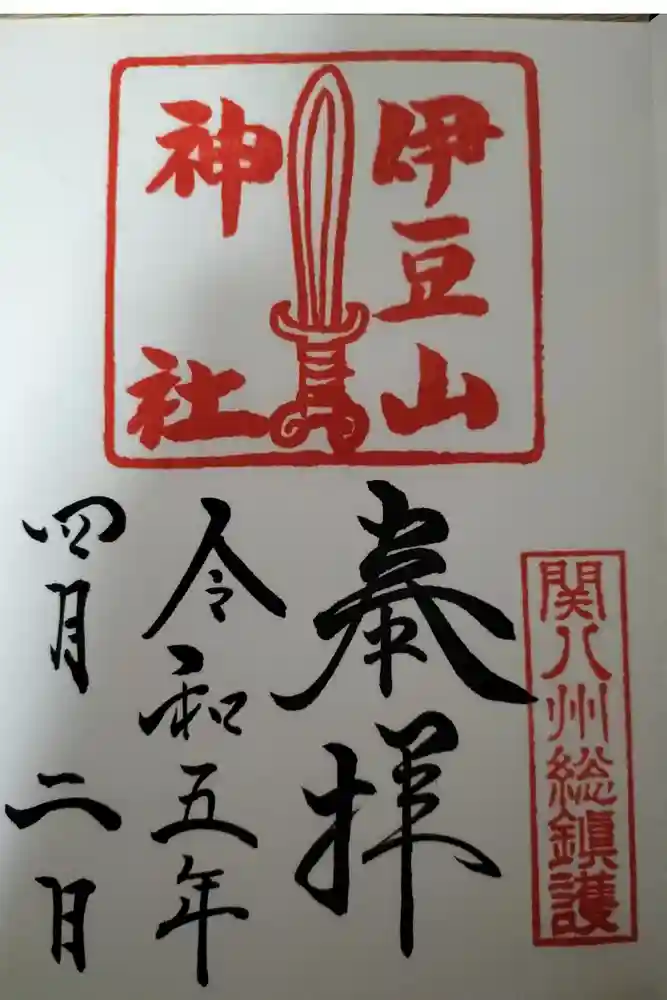 伊豆山
神社
関八州総鎮護
奉拝
令和五年
四月二日